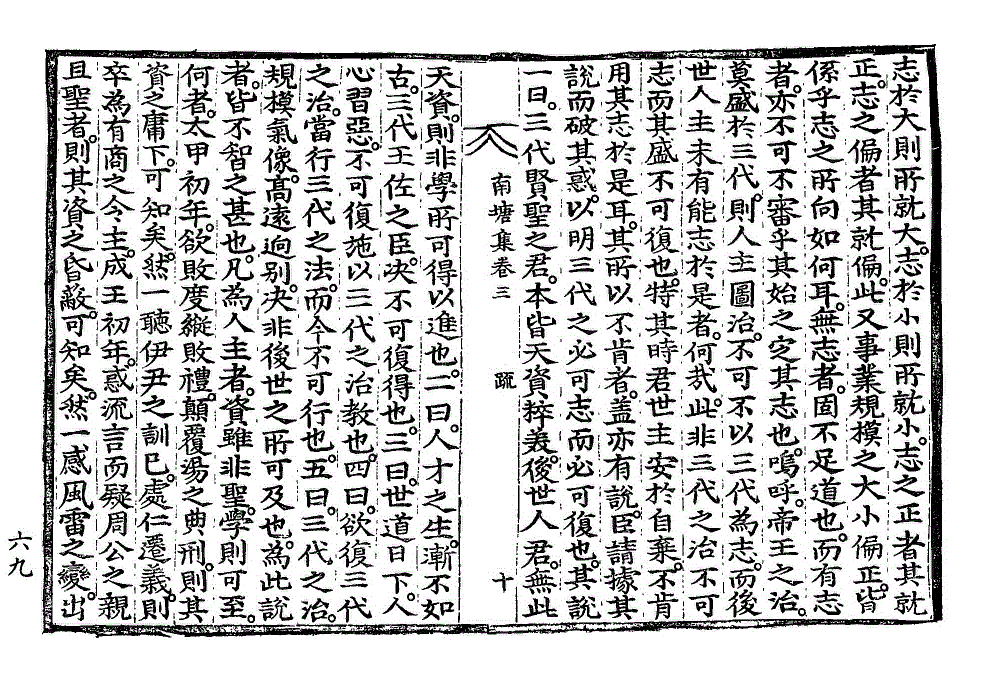 志於大則所就大。志於小則所就小。志之正者其就
正。志之偏者其就偏。此又事業規模之大小偏正。皆
係乎志之所向如何耳。無志者。固不足道也。而有志
者。亦不可不審乎其始之定其志也。嗚呼。帝王之治。
莫盛於三代。則人主圖治。不可不以三代為志。而後
世人主未有能志於是者。何㢤。此非三代之治不可
志而其盛不可復也。特其時君世主。安於自棄。不肯
用其志於是耳。其所以不肯者。盖亦有說。臣請據其
說而破其惑。以明三代之必可志而必可復也。其說
一曰。三代賢聖之君。本皆天資粹美。後世人君。無此
南塘集卷三 疏 十
天資。則非學所可得以進也。二曰。人才之生。漸不如
古。三代王佐之臣。决不可復得也。三曰。世道日下。人
心習惡。不可復施以三代之治教也。四曰。欲復三代
之治。當行三代之法。而今不可行也。五曰。三代之治。
規模氣像。高遠逈别。决非後世之所可及也。為此說
者。皆不智之甚也。凡為人主者。資雖非聖。學則可至。
何者。太甲初年。欲敗度縱敗禮。顚覆湯之典刑。則其
資之庸下。可知矣。然一聽伊尹之訓已。處仁遷義。則
卒為有商之令主。成王初年。惑流言而疑周公之親
且聖者。則其資之昏蔽。可知矣。然一感風雷之變。出
六九